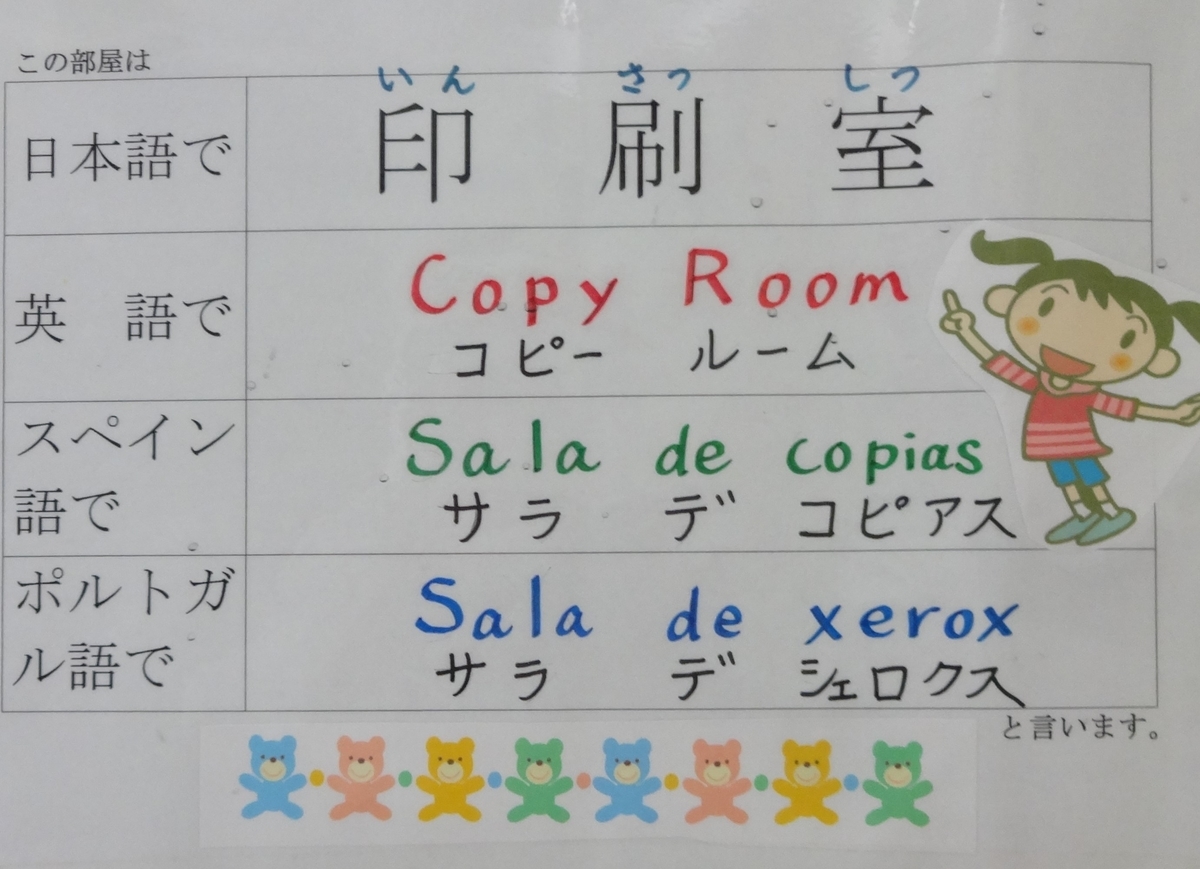 この部屋は
日本語で
いん さつ しつ
印 刷 室
英 語で
Copy Room
コピー ルーム
スペイン
語で
Sala de copias
サラ デ コピアス
ポルトガ
ル語で
Sala de xerox
サラ デ シェロクス
と言います。